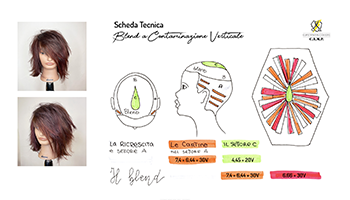 Scheda Tecnica
Blend a Contaminazione Verticale
C.A.M.P.
Blend
LA RICRESCITA
E SETTORE A
Le Cartine
NEL SETTORE A
IL SETTORE C
7,4 + 6,44 + 30V
4,45 + 20V
Il blend
7,4 + 6,44 + 30V
6,66 + 30V